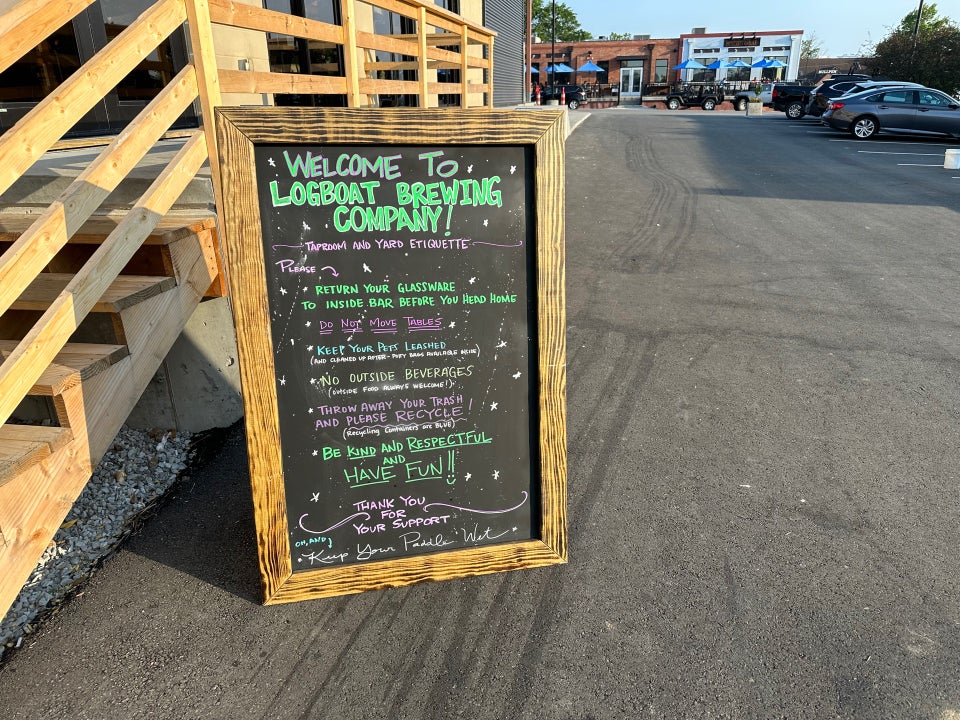 WELCOME TO
LOGBOAT BREWING
COMPANY!
TAPROOM AND YARD ETIQUETTE
PLEASE
RETURN YOUR GLASSWARE
TO INSIDE BAR BEFORE YOU HEAD HOME
DO NOT MOVE TABLES
KEEP YOUR PETS LEASHED
(AND CLEANED UP AFTER - POTTY BAGS AVAILABLE INSIDE)
NO OUTSIDE BEVERAGES
(OUTSIDE FOOD ALWAYS WELCOME!)
THROW AWAY YOUR TRASH
AND PLEASE RECYCLE!
(Recycling Containers are BLUE)
BE KIND AND RESPECTFUL
AND
HAVE FUN!!
THANK YOU
FOR
YOUR SUPPORT
OH, AND
Keep Your Paddle Wet